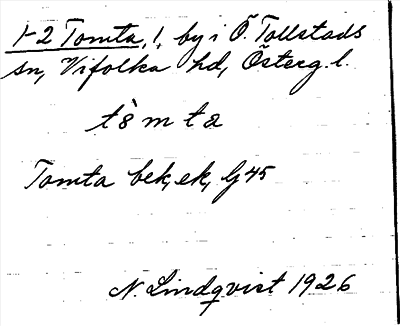 1-2 Tomta, !, by i Ö. Tollstads
sn, Vifolka hd, Österg. l.
tò̀mta
Tomta bek, ek, Gj 45
N. Lindqvist 1926